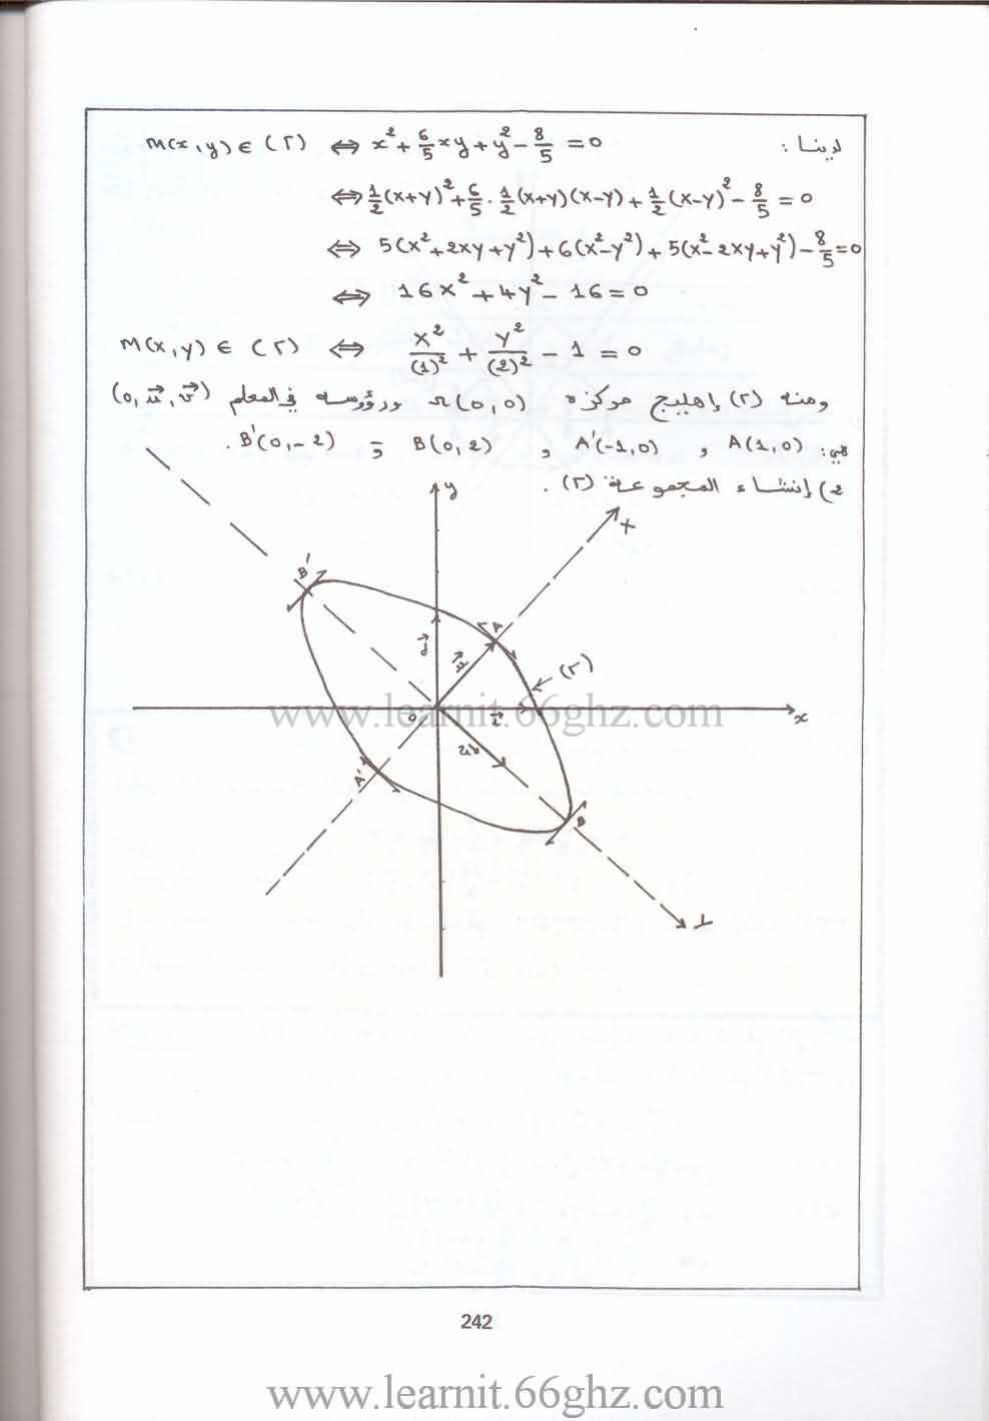 لدينا : M(x,y) ∈ (Γ) ⇔ x² + 6/5 xy + y² - 8/5 = 0
⇔ 1/2 (X+Y)² + 6/5 . 1/2 (X+Y)(X-Y) + 1/2 (X-Y)² - 8/5 = 0
⇔ 5(X²+2XY+Y²) + 6(X²-Y²) + 5(X²-2XY+Y²) - 8/5 = 0
⇔ 16X² + 4Y² - 16 = 0
M(X,Y) ∈ (Γ) ⇔ X²/(1)² + Y²/(2)² - 1 = 0
ومنه (Γ) إهليج مركزه Ω(0,0) ورؤوسه في المعلم (0,u⃗,v⃗)
هي: A(1,0) , A'(-1,0) , B(0,2) و B'(0,-2) .
2) إنشاء المجموعة (Γ) .
y
X
B'
A
j⃗
u⃗
(Γ)
www.learnit.66ghz.com
0
i⃗
x
v⃗
A'
B
Y
242
www.learnit.66ghz.com